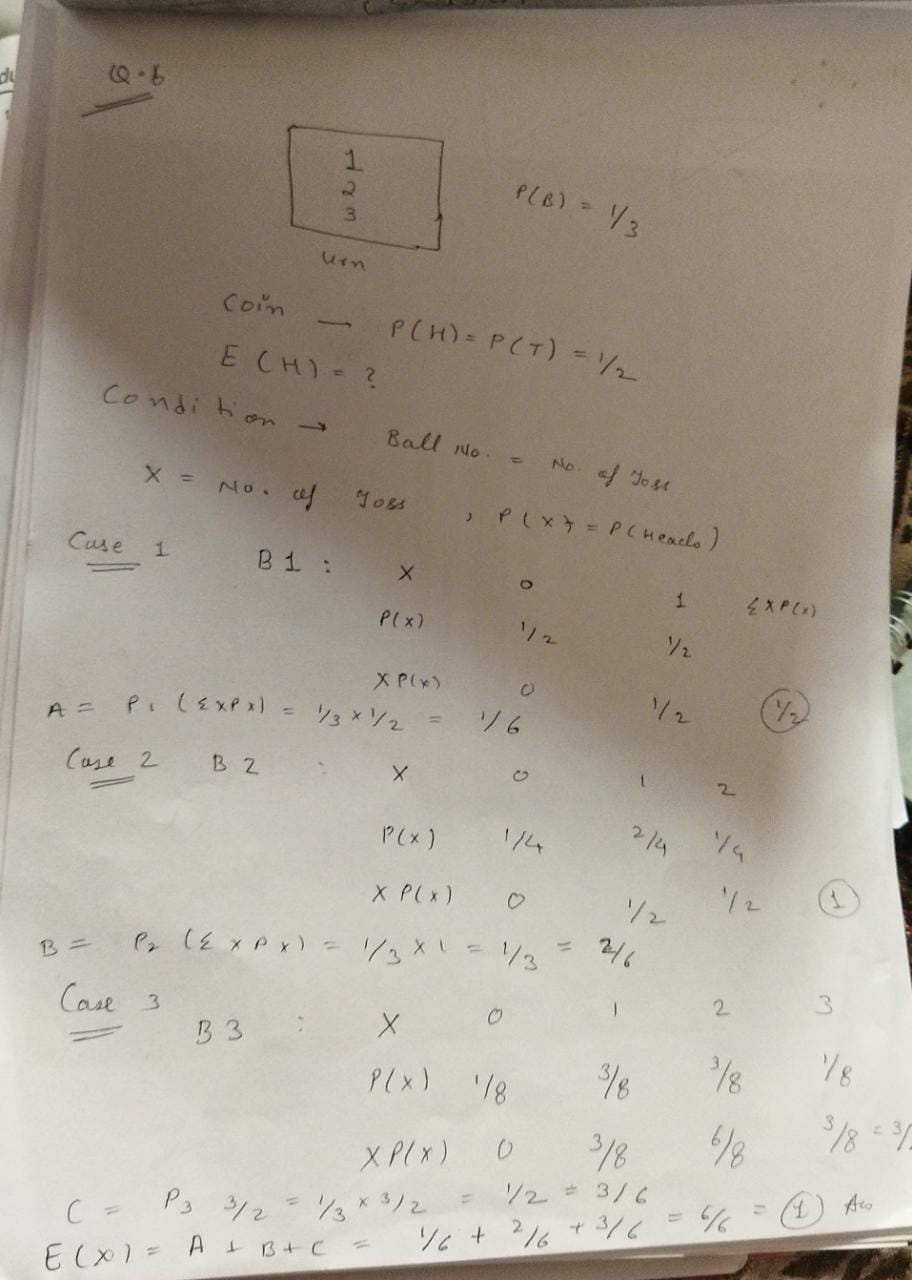 Q.6
1
2
3
P(B) = 1/3
urn
Coin — P(H) = P(T) = 1/2
E(H) = ?
Condition → Ball No. = No. of Toss
X = No. of Toss , P(X) = P(Heads)
Case 1 B1 : X 0 1 ΣXP(x)
P(x) 1/2 1/2
XP(x) 0 1/2 1/2
A = P1 (ΣxPx) = 1/3 x 1/2 = 1/6
Case 2 B2 : X 0 1 2
P(x) 1/4 2/4 1/4
XP(x) 0 1/2 1/2 1
B = P2 (ΣxPx) = 1/3 x 1 = 1/3 = 2/6
Case 3 B3 : X 0 1 2 3
P(x) 1/8 3/8 3/8 1/8
XP(x) 0 3/8 6/8 3/8 = 3/
C = P3 3/2 = 1/3 x 3/2 = 1/2 = 3/6
E(X) = A + B + C = 1/6 + 2/6 + 3/6 = 6/6 = 1 Ans